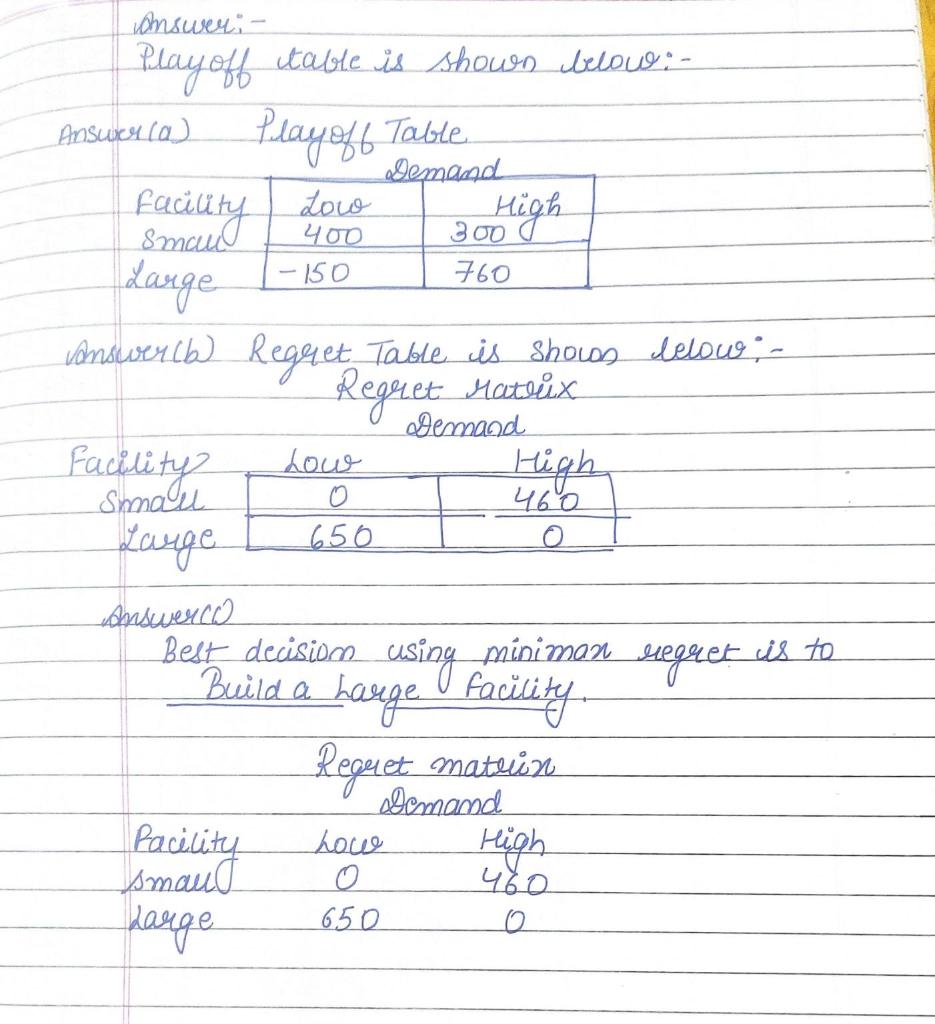 Answer:-
Playoff table is shown below:-
Answer(a) Playoff Table
Demand
Facility Low High
Small 400 300
Large -150 760
Answer(b) Regret Table is shown below:-
Regret Matrix
Demand
Facility Low High
Small 0 460
Large 650 0
Answer(c)
Best decision using minimax regret is to
Build a Large facility.
Regret matrix
Demand
Facility Low High
Small 0 460
Large 650 0